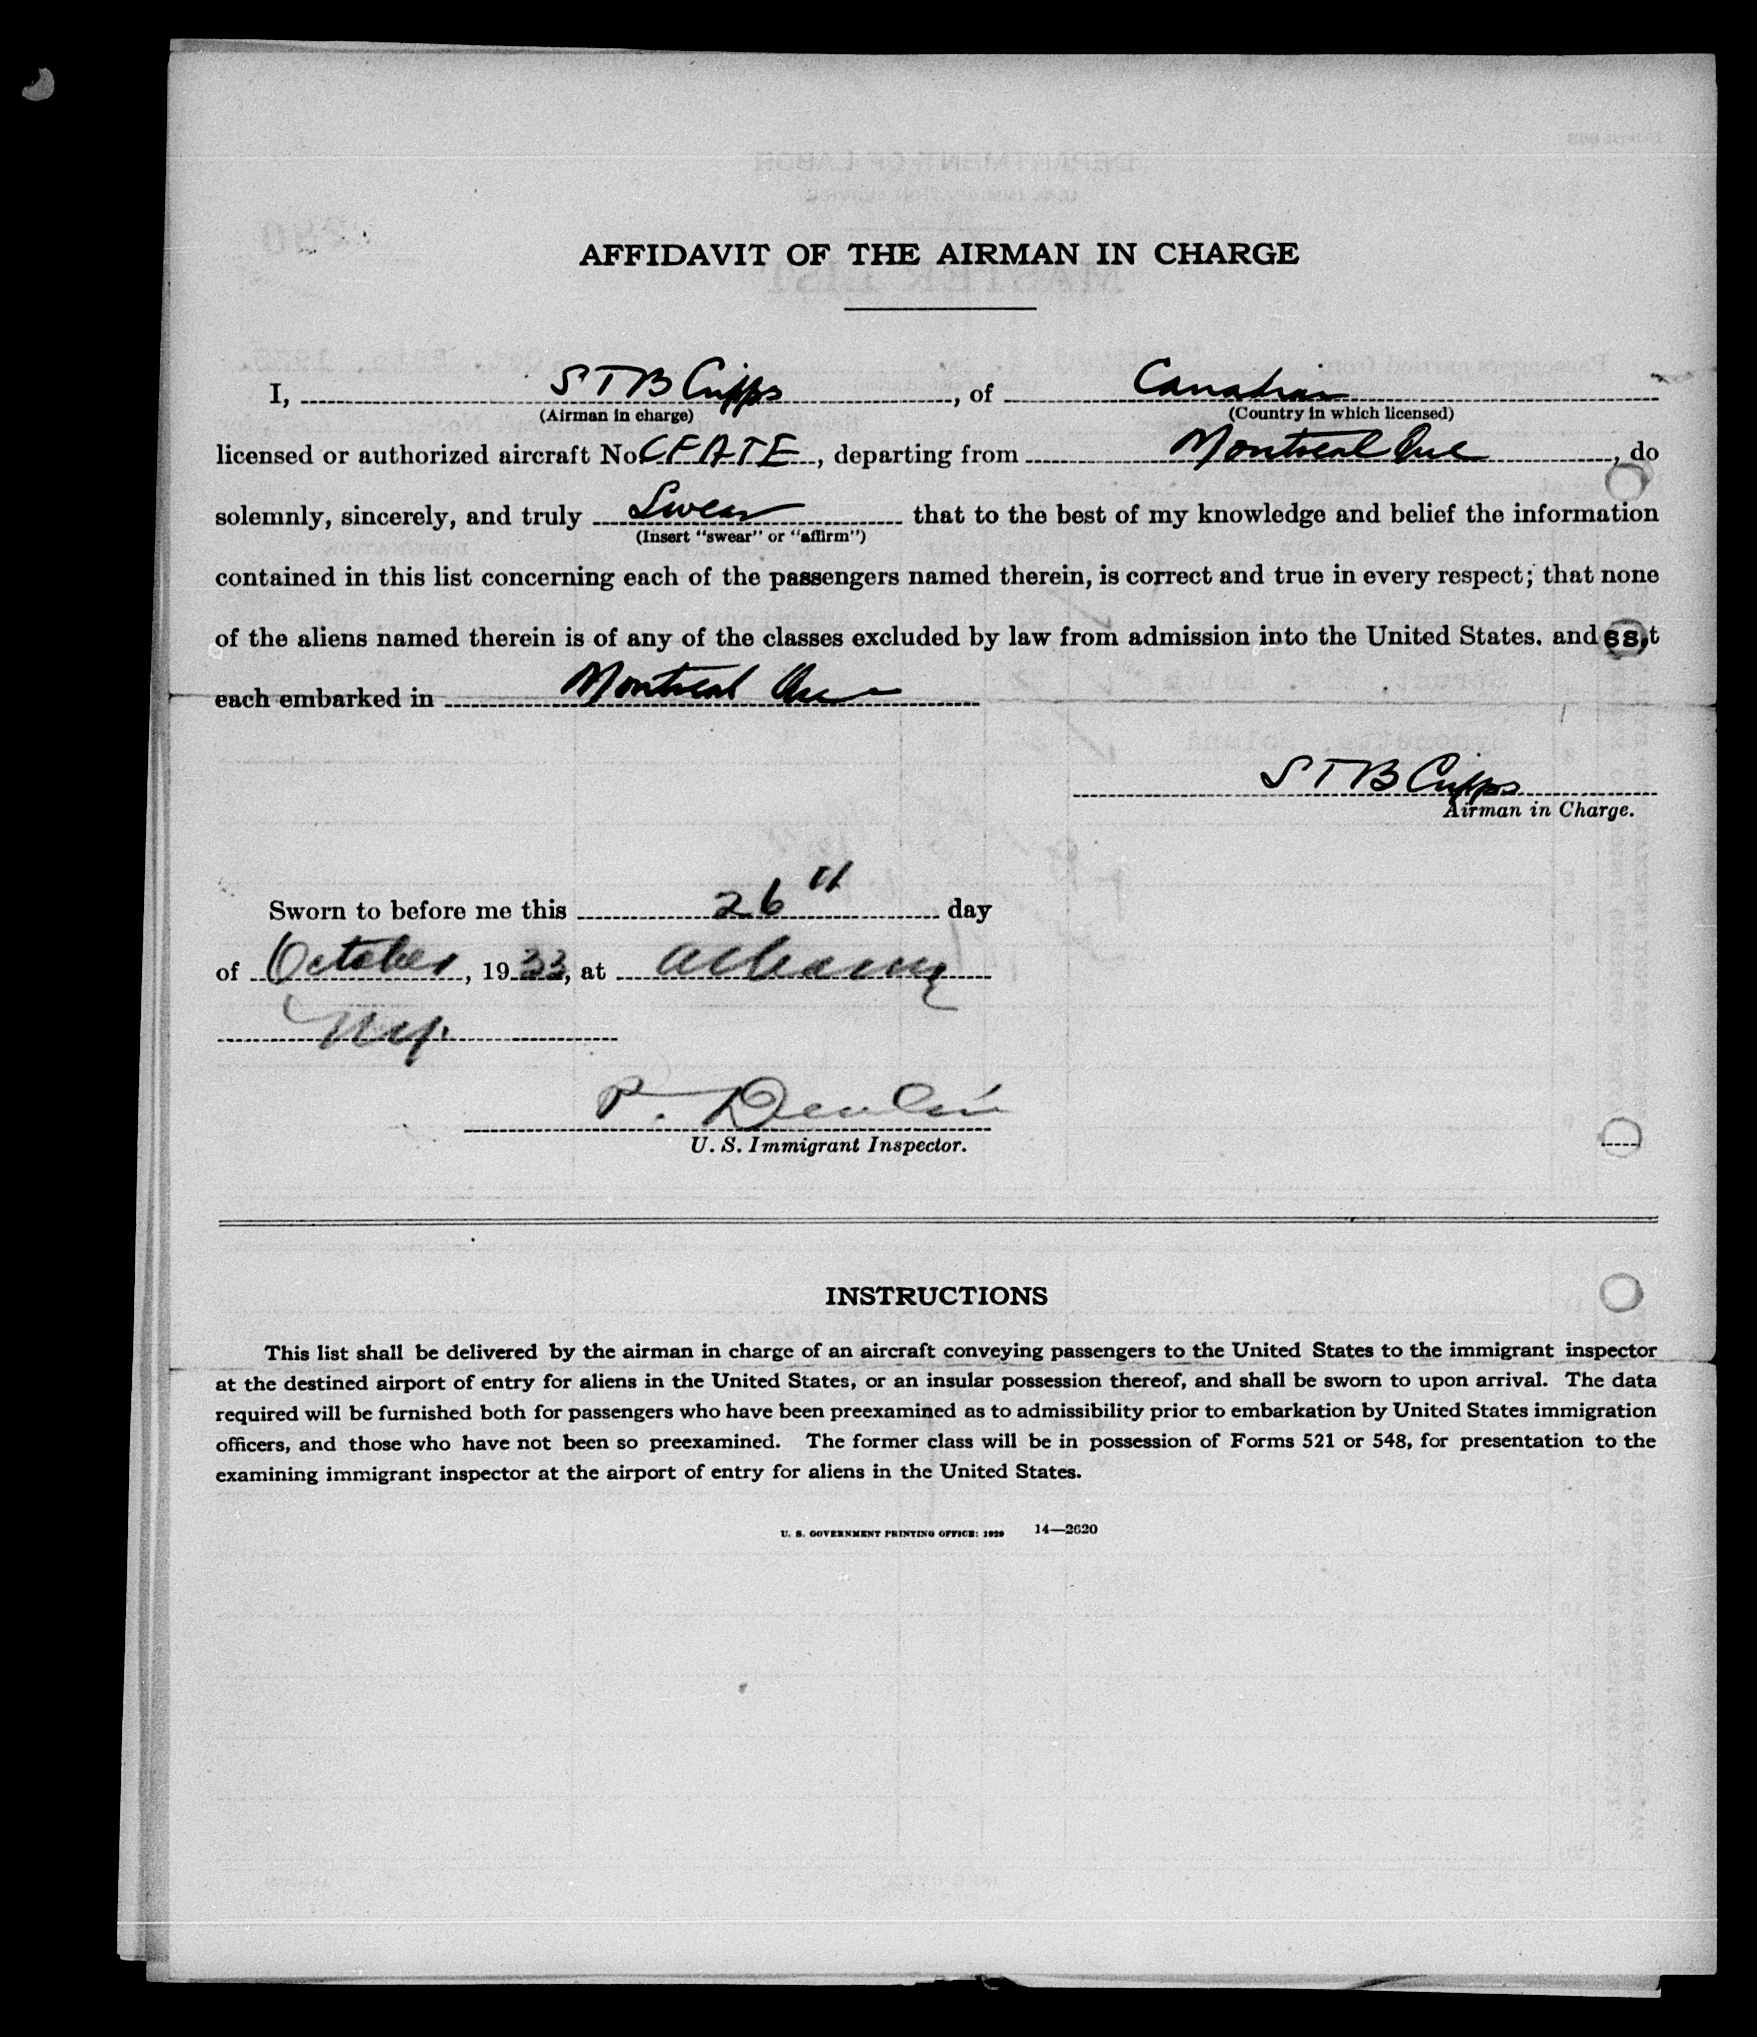 AFFIDAVIT OF THE AIRMAN IN CHARGE
I, S T B Cripps, of Canadian
(Airman in charge) (Country in which licensed)
licensed or authorized aircraft No. CFATE, departing from Montreal Que, do
solemnly, sincerely, and truly Swear that to the best of my knowledge and belief the information
(Insert "swear" or "affirm")
contained in this list concerning each of the passengers named therein, is correct and true in every respect; that none
of the aliens named therein is of any of the classes excluded by law from admission into the United States. and t
each embarked in Montreal Que
S T B Cripps
Airman in Charge.
Sworn to before me this 26th day
of October, 1933, at Albany
N.Y.
P. Devlin
U. S. Immigrant Inspector.
INSTRUCTIONS
This list shall be delivered by the airman in charge of an aircraft conveying passengers to the United States to the immigrant inspector
at the destined airport of entry for aliens in the United States, or an insular possession thereof, and shall be sworn to upon arrival. The data
required will be furnished both for passengers who have been preexamined as to admissibility prior to embarkation by United States immigration
officers, and those who have not been so preexamined. The former class will be in possession of Forms 521 or 548, for presentation to the
examining immigrant inspector at the airport of entry for aliens in the United States.
U. S. GOVERNMENT PRINTING OFFICE: 1929 14—2620